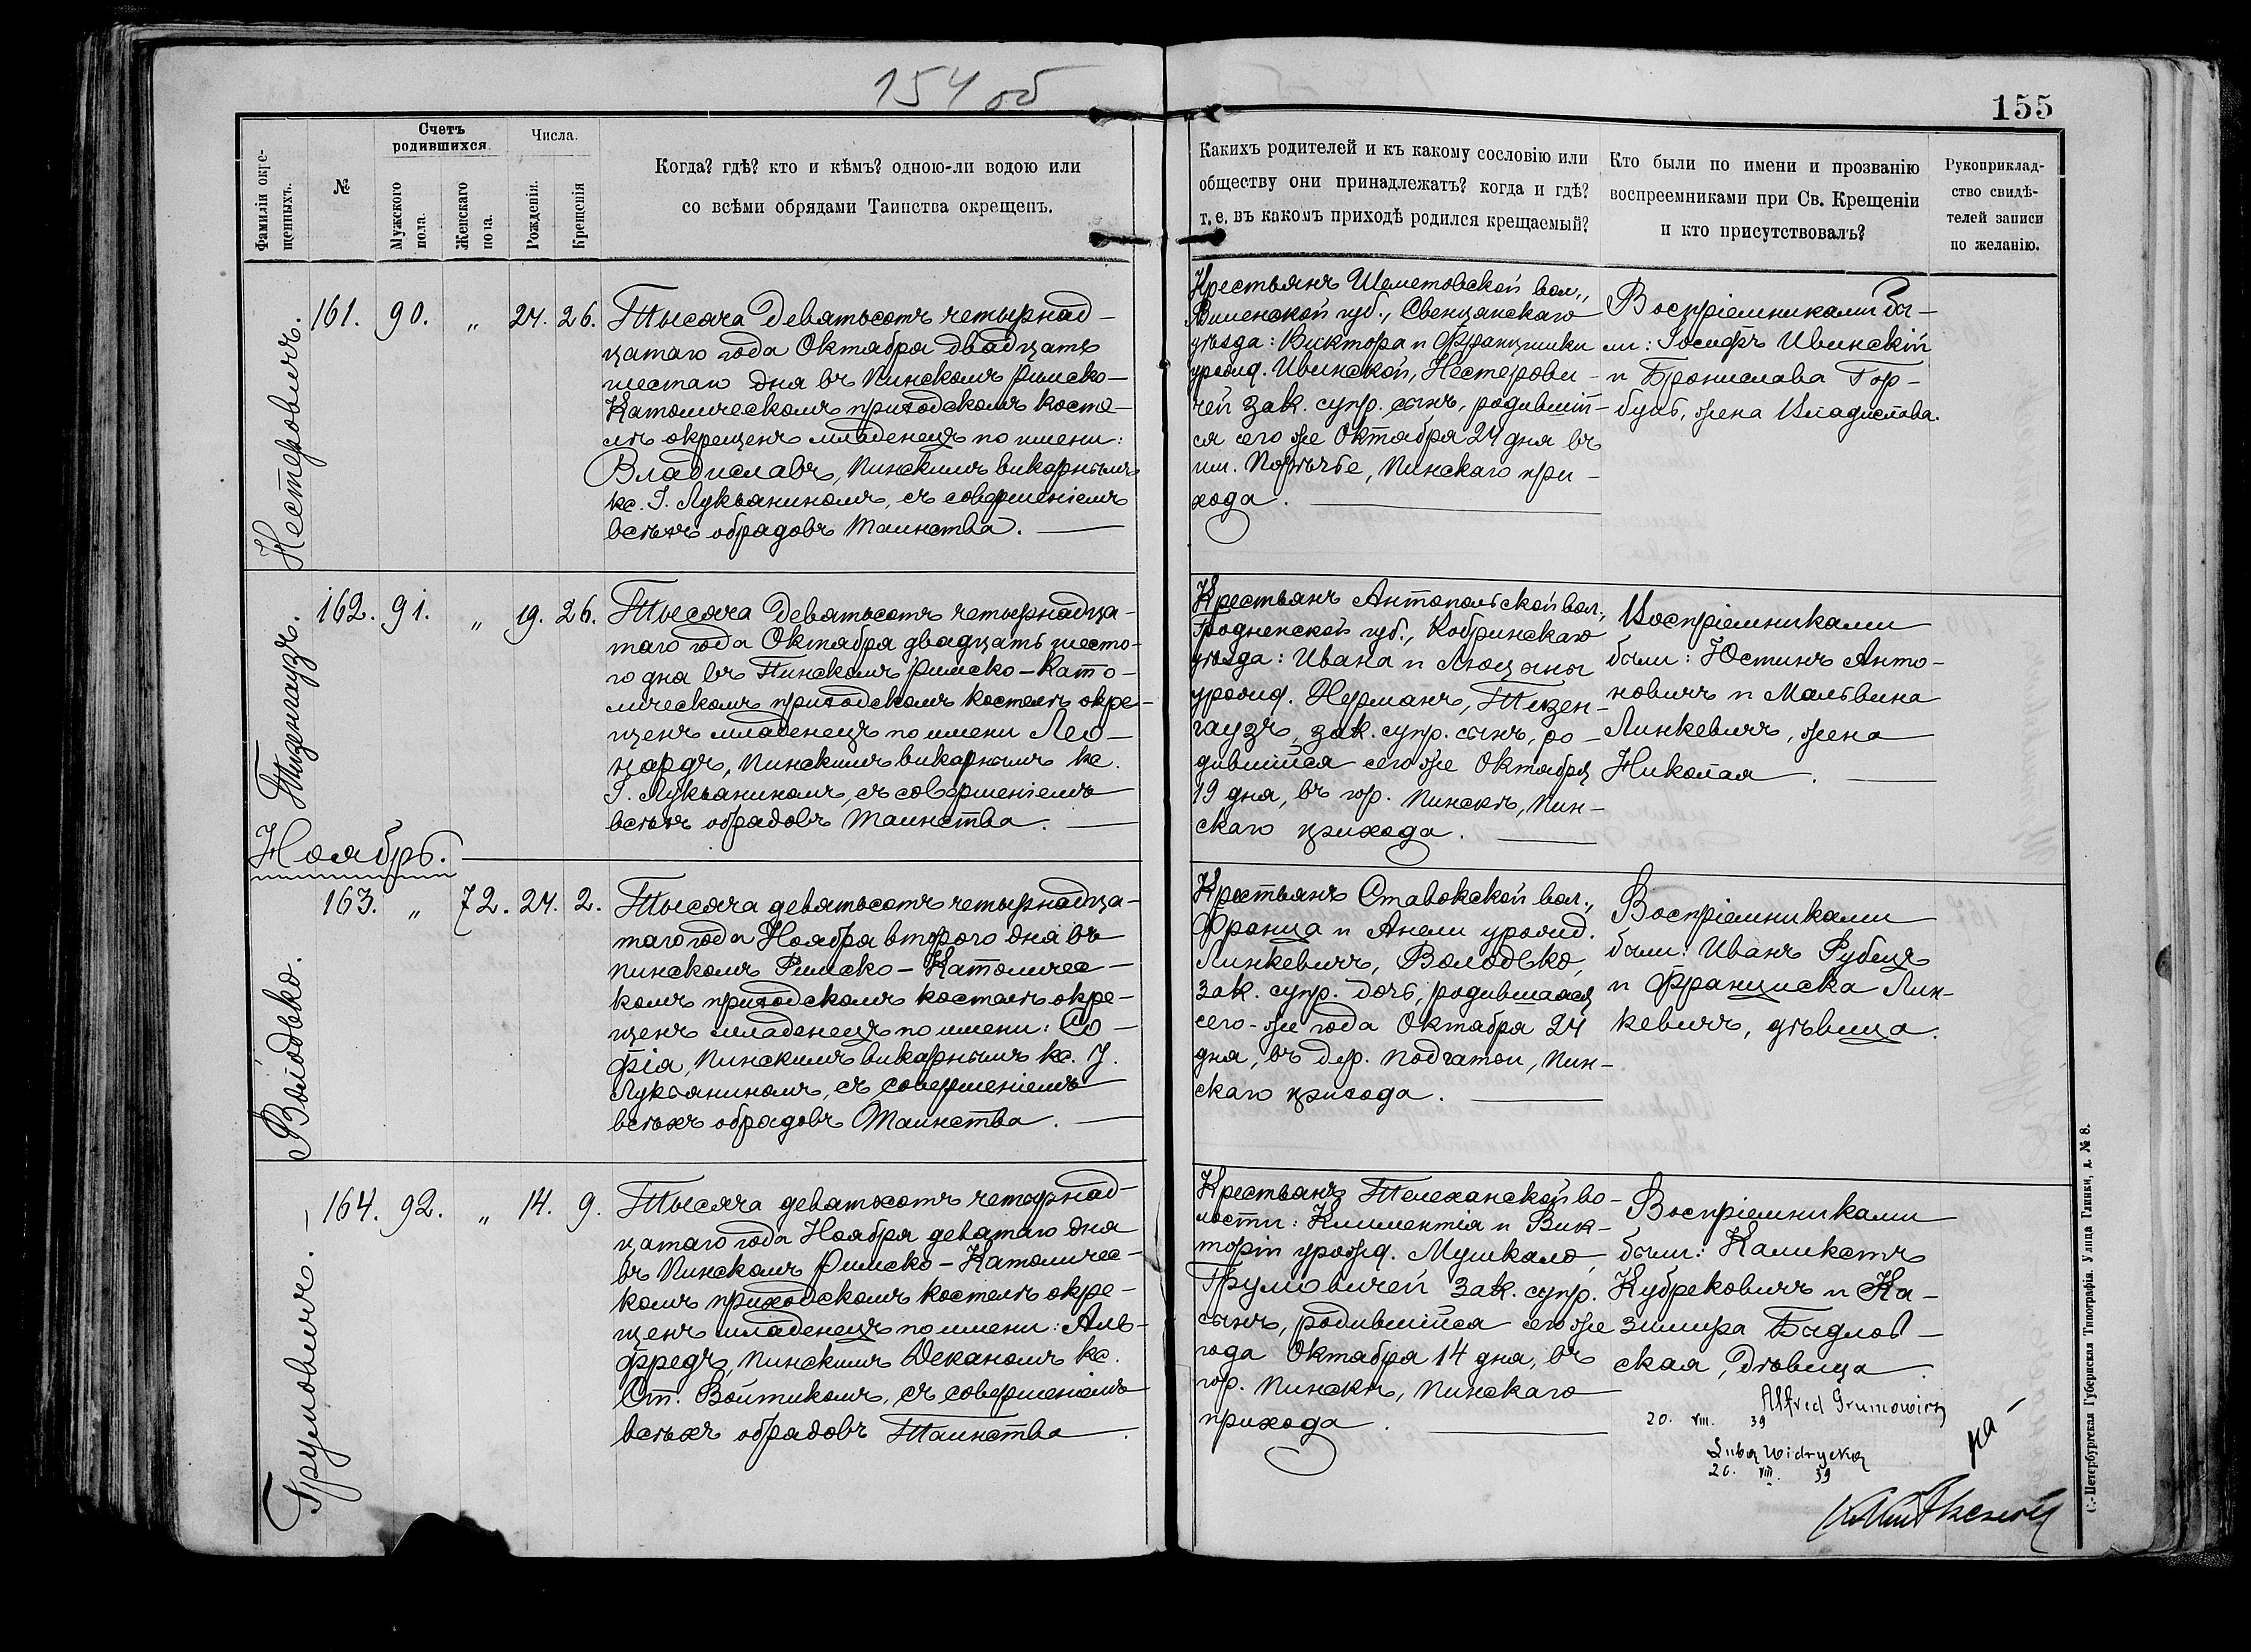 154 об
155
Фамиліи окре-
щенныхъ.
№
Счетъ
родившихся.
Мужского
пола.
Женскаго
пола.
Числа.
Рожденія.
Крещенія
Когда? гдѣ? кто и кѣмъ? одною-ли водою или
со всѣми обрядами Таинства окрещенъ.
Какихъ родителей и къ какому сословію или
обществу они принадлежатъ? когда и гдѣ?
т. е. въ какомъ приходѣ родился крещаемый?
Кто были по имени и прозванію
воспреемниками при Св. Крещеніи
и кто присутствовалъ?
Рукоприклад-
ство свидѣ-
телей записи
по желанію.
Нестеровичъ.
161. 90. „ 24. 26.
Тысяча девятьсотъ четырнад-
цатаго года Октября двадцать
шестаго дня въ Пинскомъ Римско-
Католическомъ приходскомъ косте-
лѣ окрещенъ младенецъ по имени:
Владиславъ, Пинскимъ викарнымъ
кс. І. Лукьяниномъ, съ совершеніемъ
всѣхъ обрядовъ Таинства.
Крестьянъ Шеметовской вол.,
Виленской губ., Свенцянскаго
уѣзда: Виктора и Францишки
урожд. Ивинской, Нестерови-
чей зак. супр. сынъ, родившій-
ся сего же Октября 24 дня въ
им. Порѣчье, Пинскаго при-
хода.
Воспріемниками бы-
ли: Іосифъ Ивинскій
и Бронислава Гор-
буль, жена Владислава.
Тизенгаузъ.
162. 91. „ 19. 26.
Тысяча девятьсотъ четырнадца-
таго года Октября двадцать шесто-
го дня въ Пинскомъ Римско-Като-
лическомъ приходскомъ костелѣ окре-
щенъ младенецъ по имени Лео-
нардъ, Пинскимъ викарнымъ кс.
І. Лукьяниномъ, съ совершеніемъ
всѣхъ обрядовъ Таинства.
Крестьянъ Антопольской вол.,
Гродненской губ., Кобринскаго
уѣзда: Ивана и Люцыны
урожд. Нерманъ, Тизен-
гаузъ, зак. супр. сынъ, ро-
дившійся сего же Октября
19 дня, въ гор. Пинскѣ, Пин-
скаго прихода.
Воспріемниками
были: Юстинъ Анто-
новичъ и Мальвина
Линкевичъ, жена
Николая.
Ноябрь.
Володько.
163. „ 72. 24. 2.
Тысяча девятьсотъ четырнадца-
таго года Ноября второго дня въ
Пинскомъ Римско-Католичес-
комъ приходскомъ костелѣ окре-
щенъ младенецъ по имени: Со-
фія, Пинскимъ викарнымъ кс. І.
Лукьяниномъ, съ совершеніемъ
всѣхъ обрядовъ Таинства.
Крестьянъ Ставокской вол.,
Франца и Анели урожд.
Линкевичъ, Володько,
зак. супр. дочь, родившаяся
сего-же года Октября 24
дня, въ дер. Подгатои, Пин-
скаго прихода.
Воспріемниками
были: Иванъ Рубецъ
и Франциска Лин-
кевичъ, дѣвица.
Грумовичъ.
164. 92. „ 14. 9.
Тысяча девятьсотъ четырнад-
цатаго года Ноября девятаго дня
въ Пинскомъ Римско-Католичес-
комъ приходскомъ костелѣ окре-
щенъ младенецъ по имени: Аль-
фредъ, Пинскимъ Деканомъ кс.
Ст. Войтикомъ, съ совершеніемъ
всѣхъ обрядовъ Таинства.
Крестьянъ Телеханской во-
лости: Климентія и Вик-
торіи урожд. Мушкало,
Грумовичей зак. супр.
сынъ, родившійся сего же
года Октября 14 дня, въ
гор. Пинскѣ, Пинскаго
прихода.
Воспріемниками
были: Каликстъ
Кубрековичъ и Ка-
зимира Быдлов-
ская, Дѣвица.
Alfred Grumowicz
20. VIII. 39
Luba Widrycka
20. VIII. 39
С.-Петербургская Губернская Типографія. Улица Глинки, д. № 8.